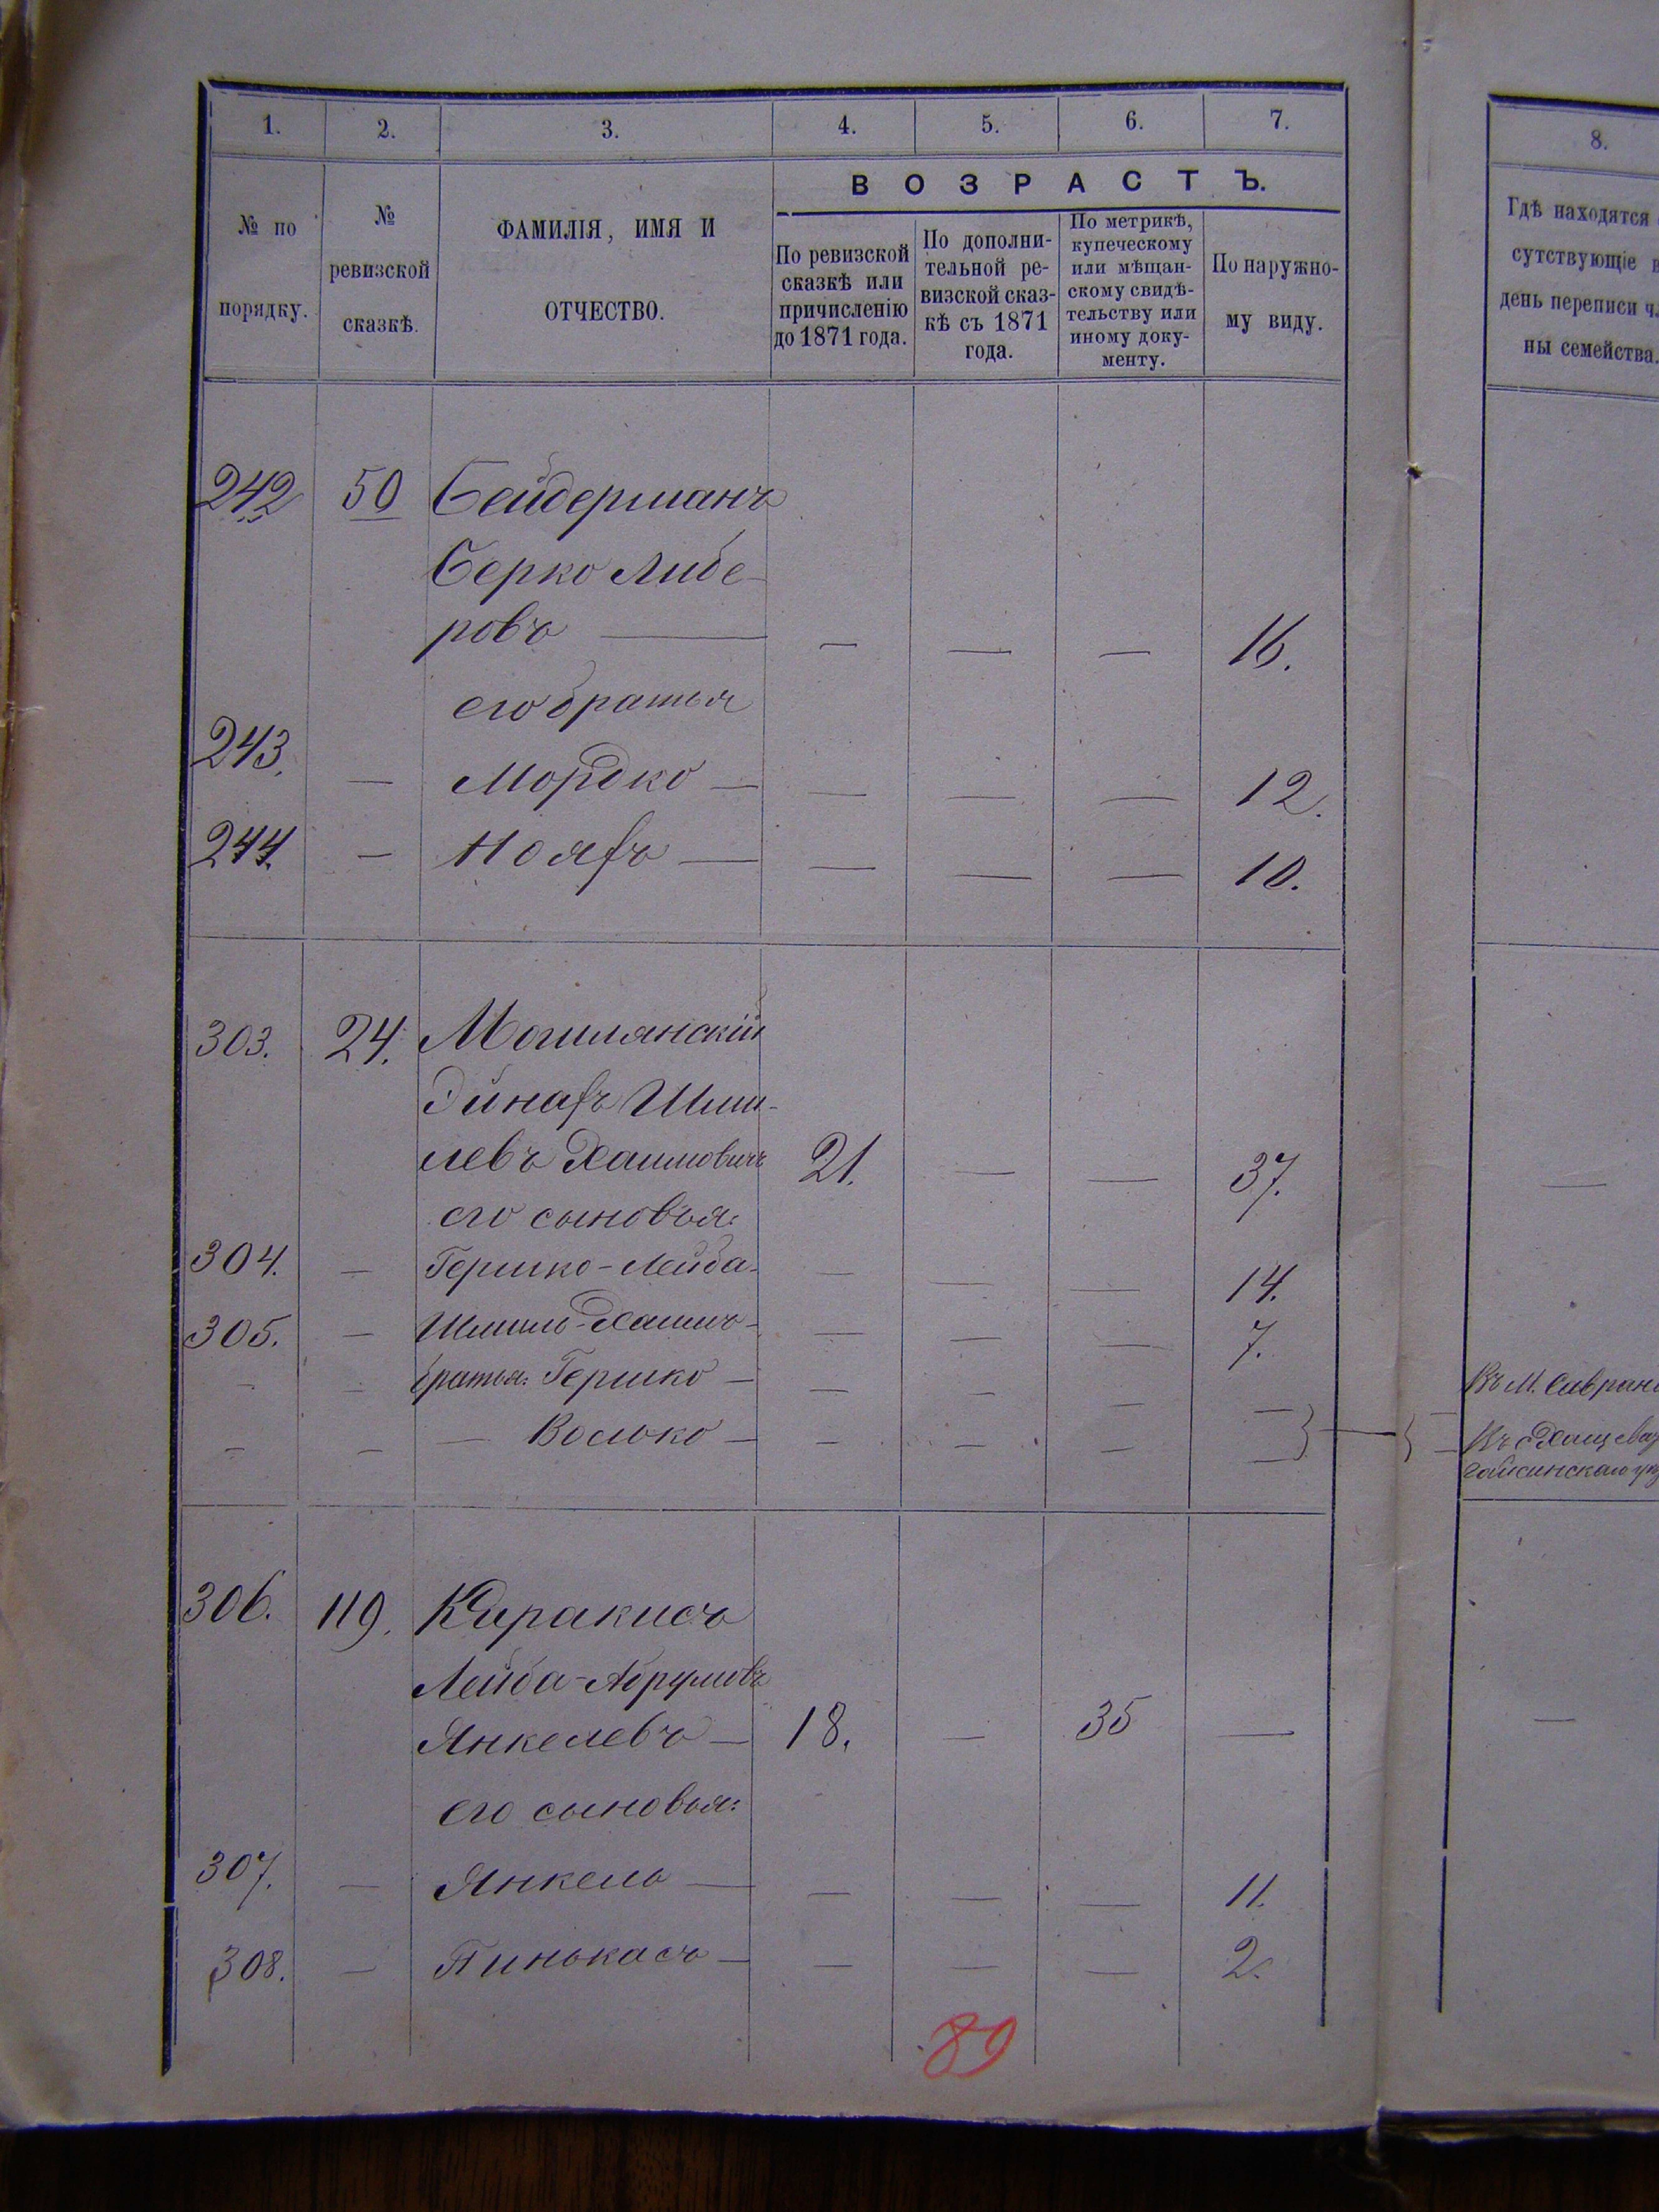 1. 2. 3. 4. 5. 6. 7.
8.
ВОЗРАСТЪ.
№ по
порядку.
№
ревизской
сказкѣ.
ФАМИЛІЯ, ИМЯ И
ОТЧЕСТВО.
По ревизской
сказкѣ или
причисленію
до 1871 года.
По дополни-
тельной ре-
визской сказ-
кѣ съ 1871
года.
По метрикѣ,
купеческому
или мѣщан-
скому свидѣ-
тельству или
иному доку-
менту.
По наружно-
му виду.
Гдѣ находятся
сутствующіе
день переписи
ны семейства.
242 50 Бейдерманъ
Берко Либе-
ровъ — — — — 16.
его братья
243. — Мордко — — — — 12.
244. — — — — — 10.
303. 24. Могилянскій
Шми-
левъ Хаимовичъ 21. — — 37. —
его сыновья:
304. — Гершко-Лейба — — — 14.
305. — Шмиль-Хаимъ — — — 7.
— — братья: Гершко — — — — — Въ М. Савран
— — — Волько — — — — — Въ
Гайсинскаго
306. 119. Каракисъ
Лейба-Абрумовъ
Янкелевъ — 18. — 35 — —
его сыновья:
307. — Янкель — — — — 11.
308. — Пинькасъ — — — — 2.
89